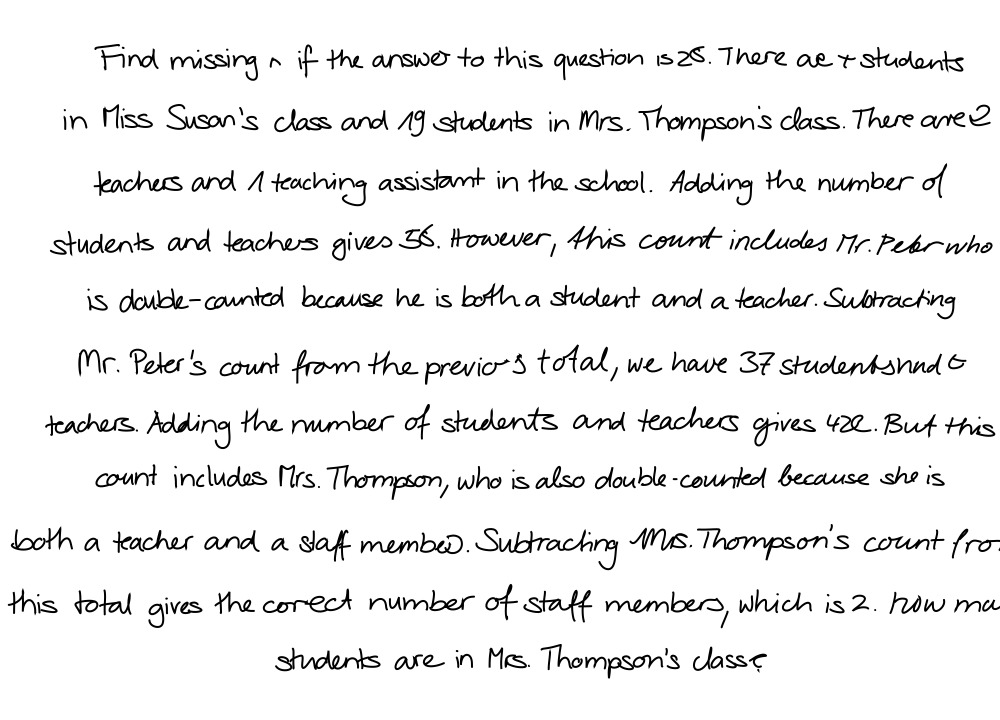 Find missing ^ if the answer to this question is 25. There ae + students
in Miss Susan's class and 19 students in Mrs. Thompson's class. There are 2
teachers and 1 teaching assistant in the school. Adding the number of
students and teachers gives 36. However, this count includes Mr. Peter who
is double-counted because he is both a student and a teacher. Subtracting
Mr. Peter's count from the previous total, we have 37 students
teachers. Adding the number of students and teachers gives 422. But this
count includes Mrs. Thompson, who is also double-counted because she is
both a teacher and a staff member. Subtracting Mrs. Thompson's count fro
this total gives the correct number of staff members, which is 2. how ma
students are in Mrs. Thompson's class?